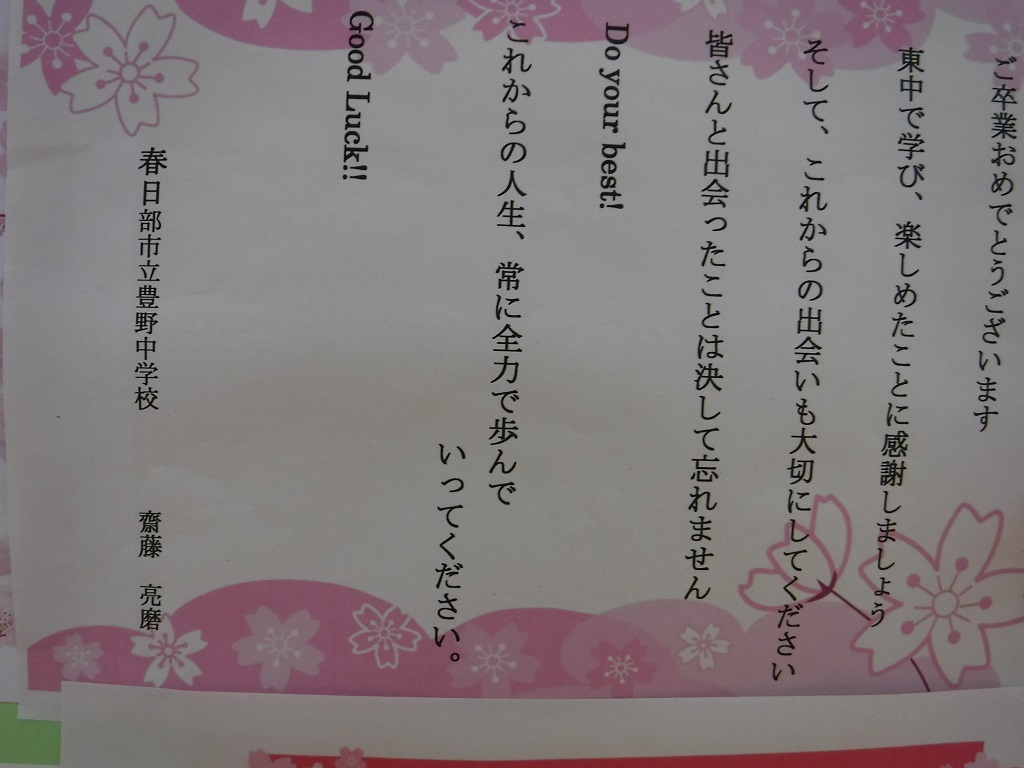 ご卒業おめでとうございます
東中で学び、楽しめたことに感謝しましょう
そして、これからの出会いも大切にしてください
皆さんと出会ったことは決して忘れません
Do your best!
これからの人生、常に全力で歩んで
いってください。
Good Luck!!
春日部市立豊野中学校 齋藤 亮磨